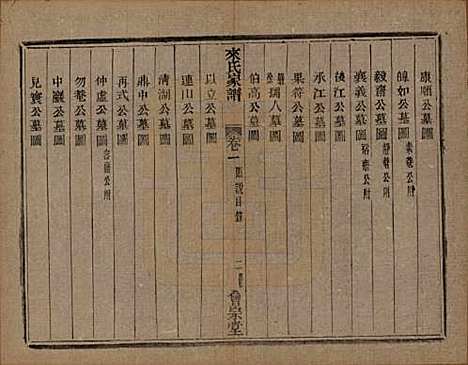 康順公墓圖
皥如公墓圖 素菴公附
毅齋公墓圖 靜菴公附
襄義公墓圖 裕菴公附
後江公墓圖
承江公墓圖
果符公墓圖
瑞人公墓圖
伯高公墓圖
來氏家譜
卷一
圖說目錄
二
會宗堂
以立公墓圖
連山公墓圖
清湖公墓圖
鼎中公墓圖
再式公墓圖
仲虛公墓圖
勿菴公墓圖
中巖公墓圖
見寰公墓圖